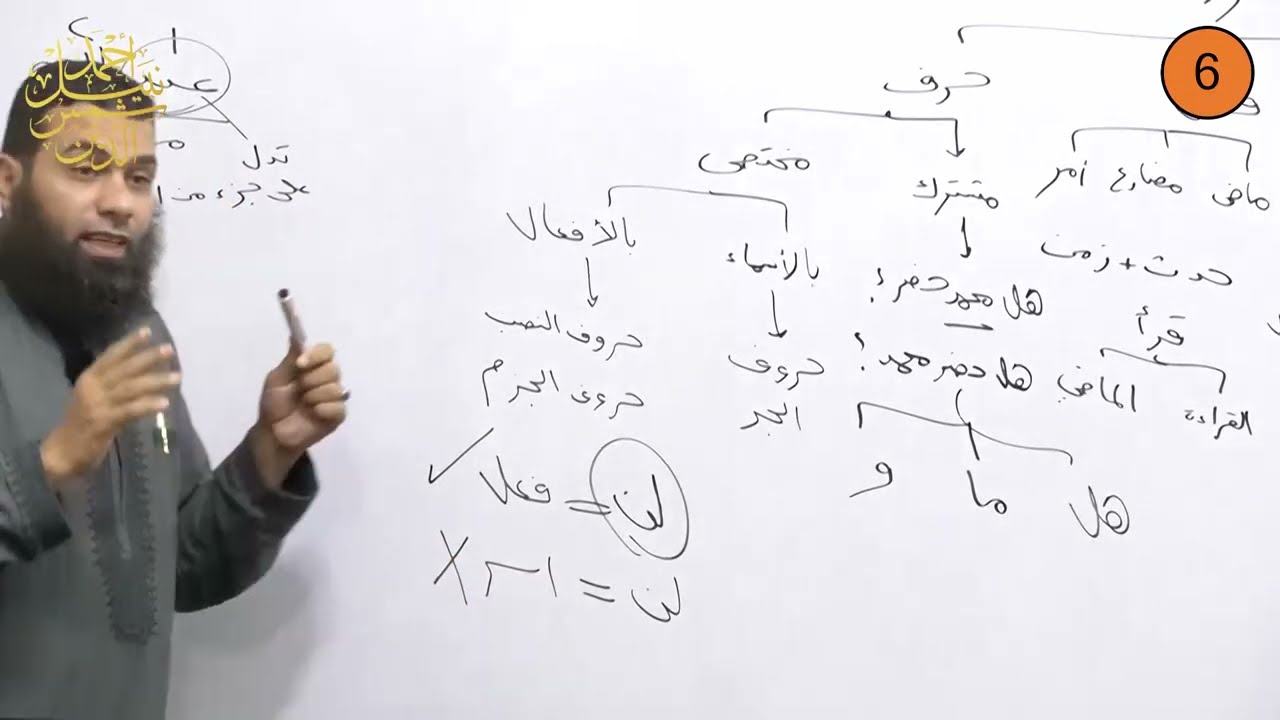 6
حرف
ماضي مضارع أمر
مختص
مشترك
تدل
على جزء من
بالأفعال
بالأسماء
حدث + زمن
هل محمد حضر؟
قرأ
حروف النصب
هل حضر محمد؟
حروف
الجر
الماضي
القراءة
حروف الجزم
هل ما و
لن = فعل ✓
لن = اسم X
أحمد
نبيل
شمس
الدين